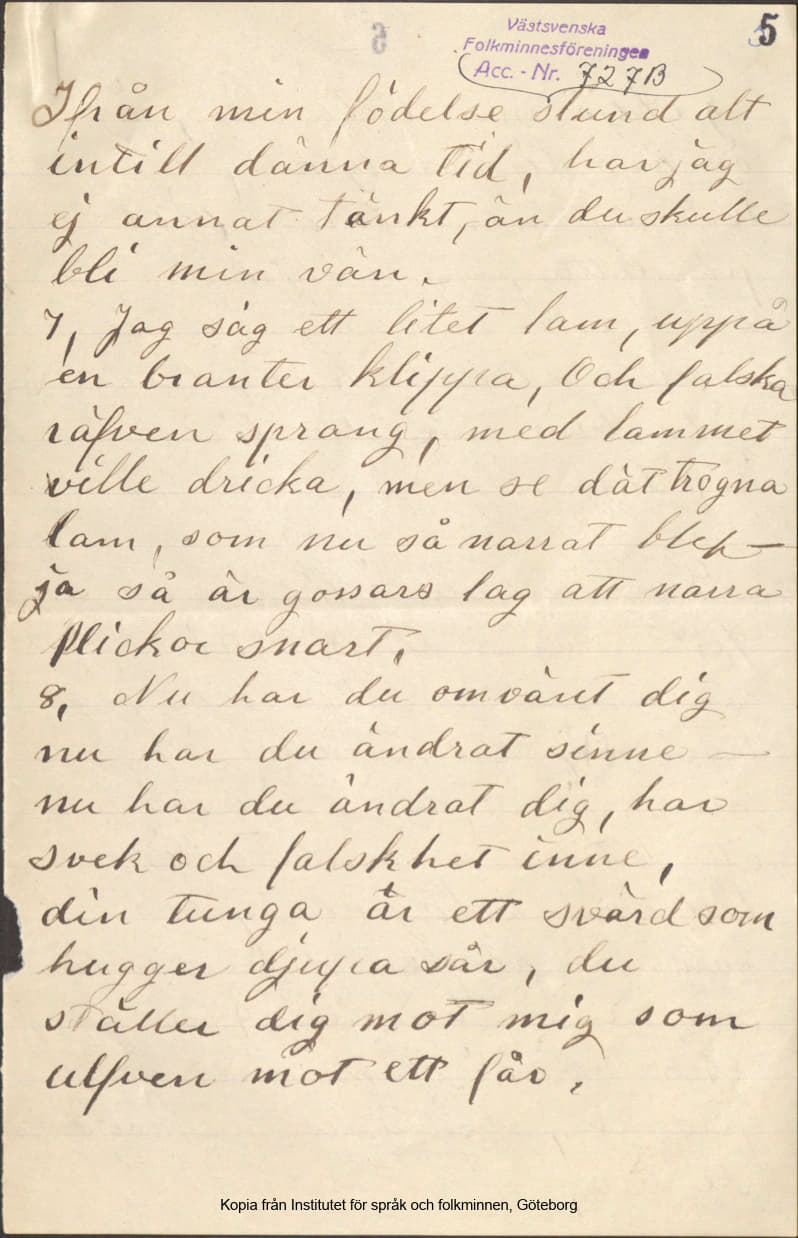 Västsvenska
Folkminnesföreningen
Acc. - Nr. 727B
5
Ifrån min födelse stund alt
intill dänna tid, har jag
ej annat tänkt, än du skulle
bli min vän.
7, Jag såg ett litet lam, uppå
en branter klippa, Och falska
räfven sprang, med lammet
ville dricka, men se dät trogna
lam, som nu så narrat blef —
ja så är gossars lag att narra
flickor snart.
8, Nu har du omvänt dig
nu har du ändrat sinne —
nu har du ändrat dig, har
svek och falskhet inne,
din tunga är ett svärd som
hugger djupa sår, du
ställer dig mot mig som
ulfven mot ett får.
Kopia från Institutet för språk och folkminnen, Göteborg